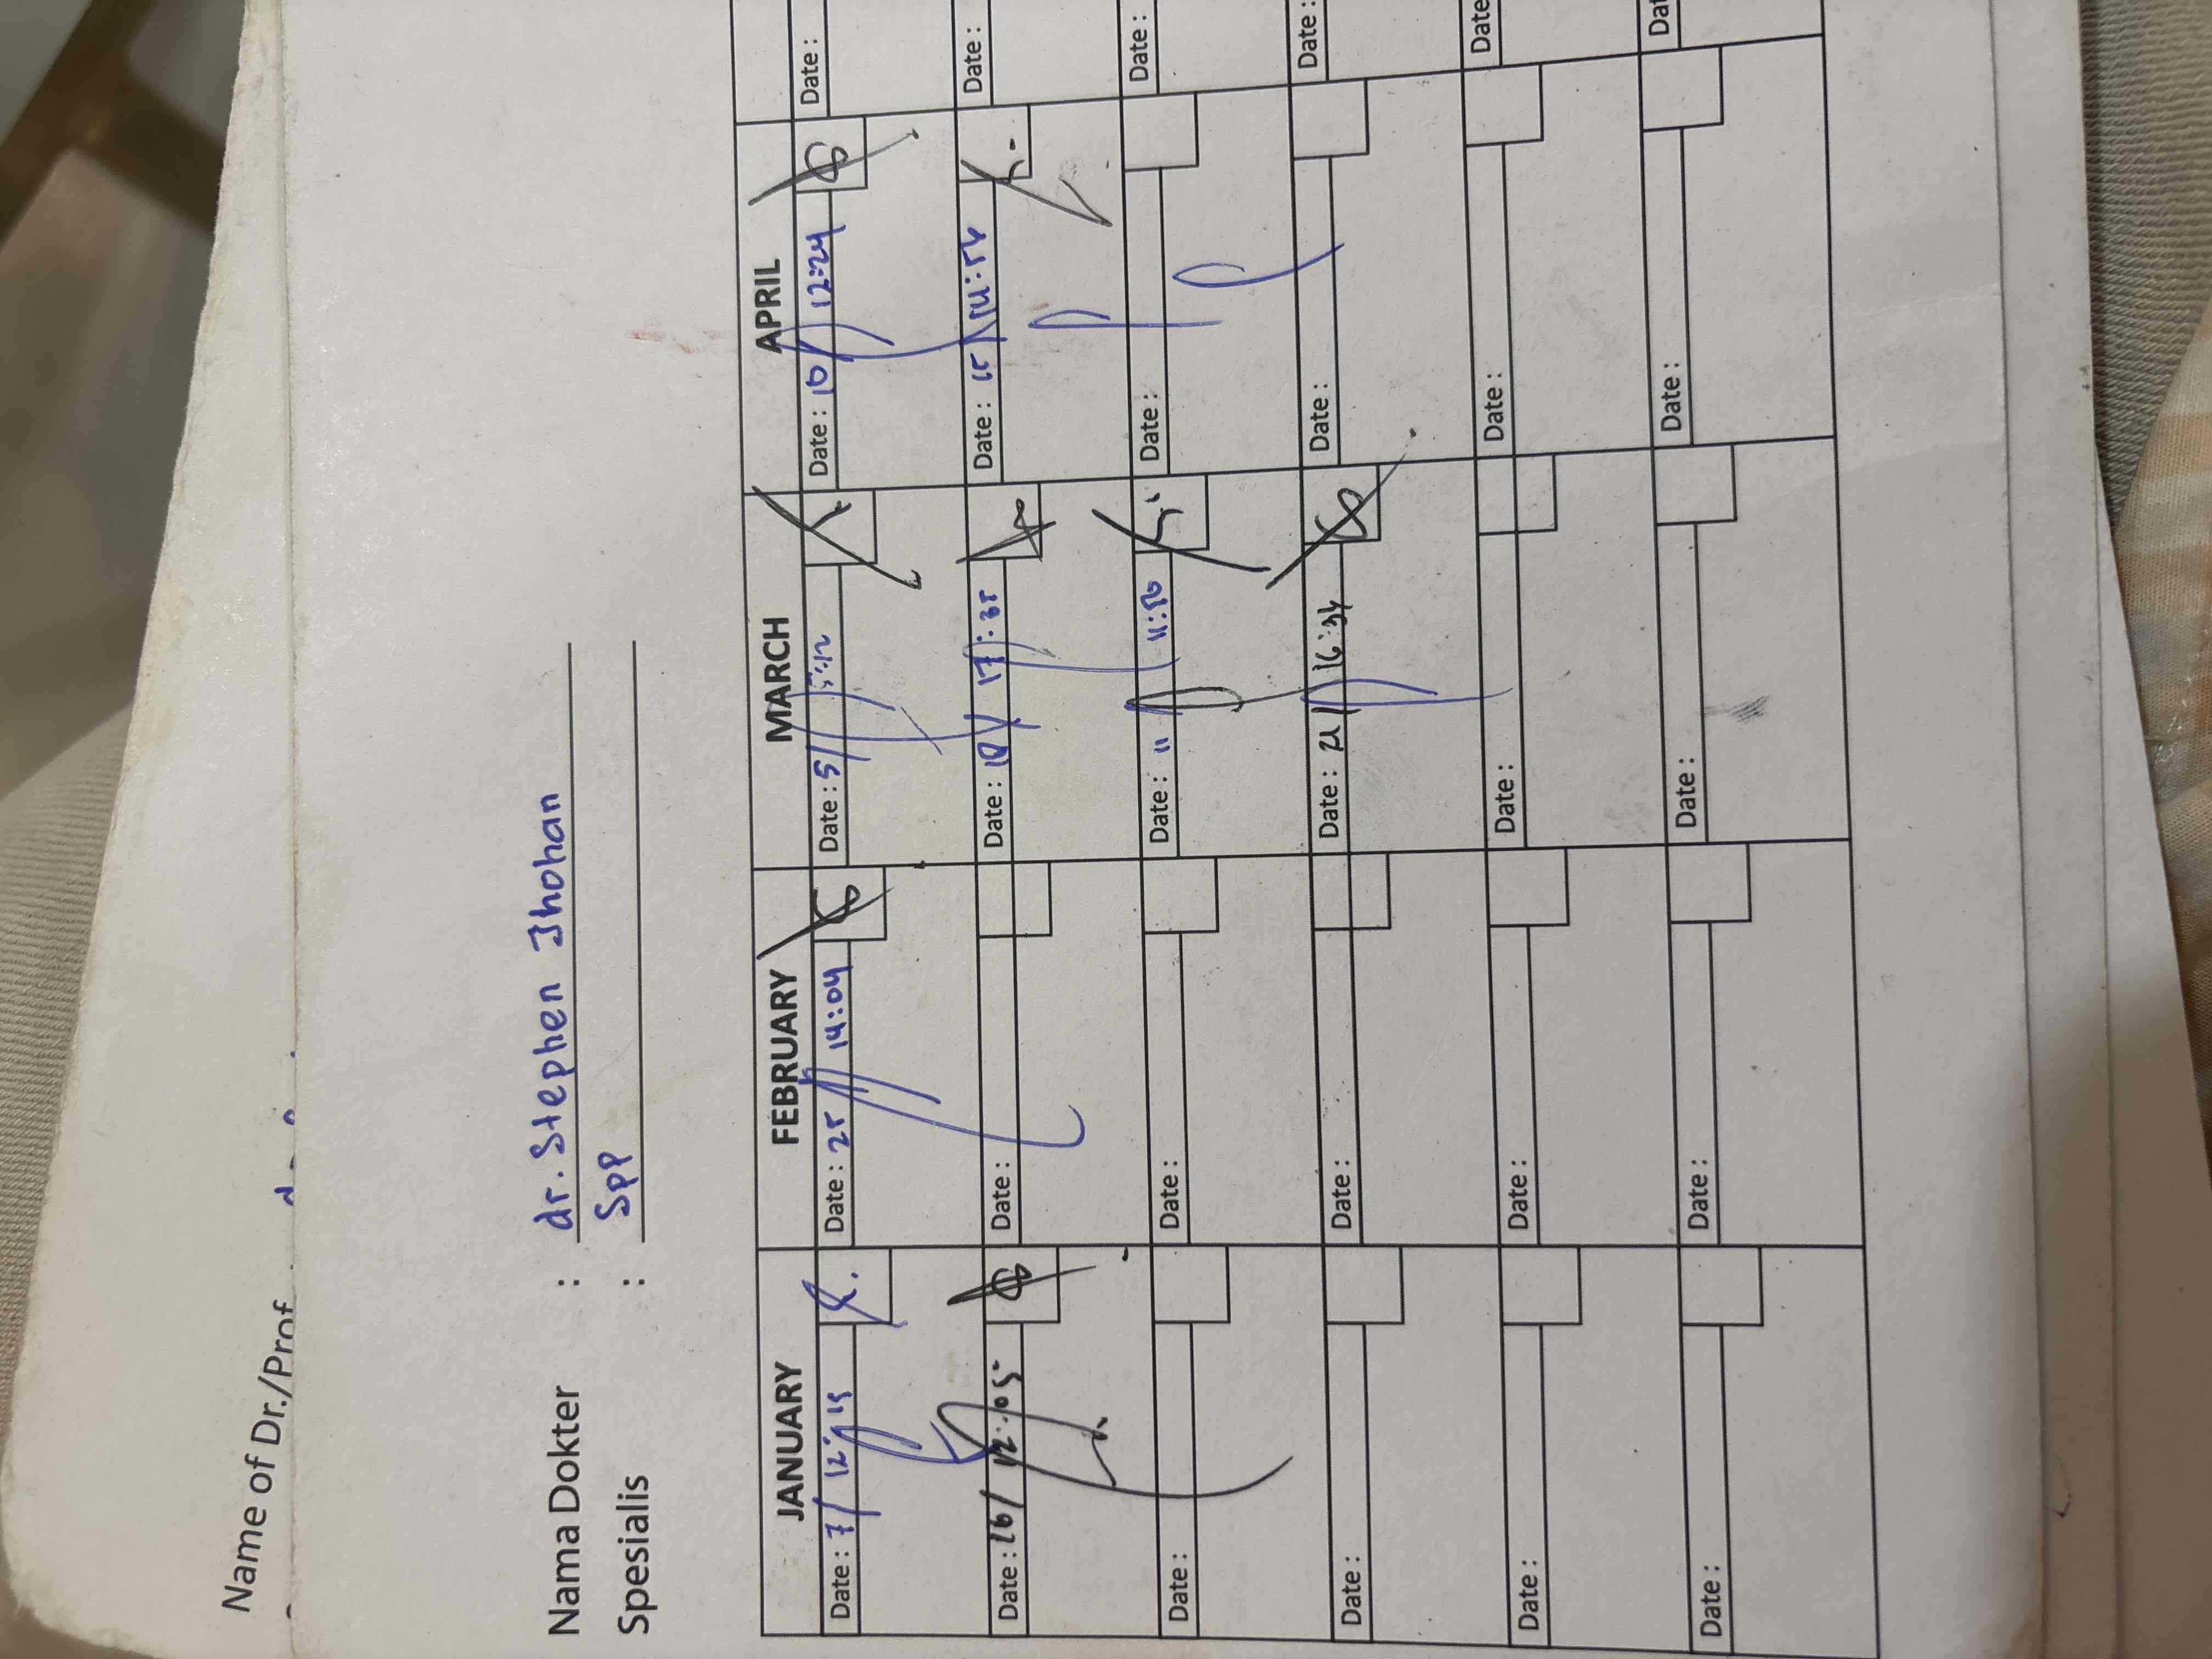 Name of Dr./Prof
Nama Dokter : dr. Stephen Jhohan
Spesialis : SPP
JANUARY FEBRUARY MARCH APRIL
Date : 7/ 12:15 Date : 25 14:04 Date : 5/ Date : 10/ 12:24 Date :
Date : 16/ 12:05 Date : Date : 10/ 17:35 Date : 15/ Date :
Date : Date : Date : 11 11:50 Date : Date :
Date : Date : Date : 21/ 16:34 Date : Date :
Date : Date : Date : Date : Date
Date : Date : Date : Date : Dat